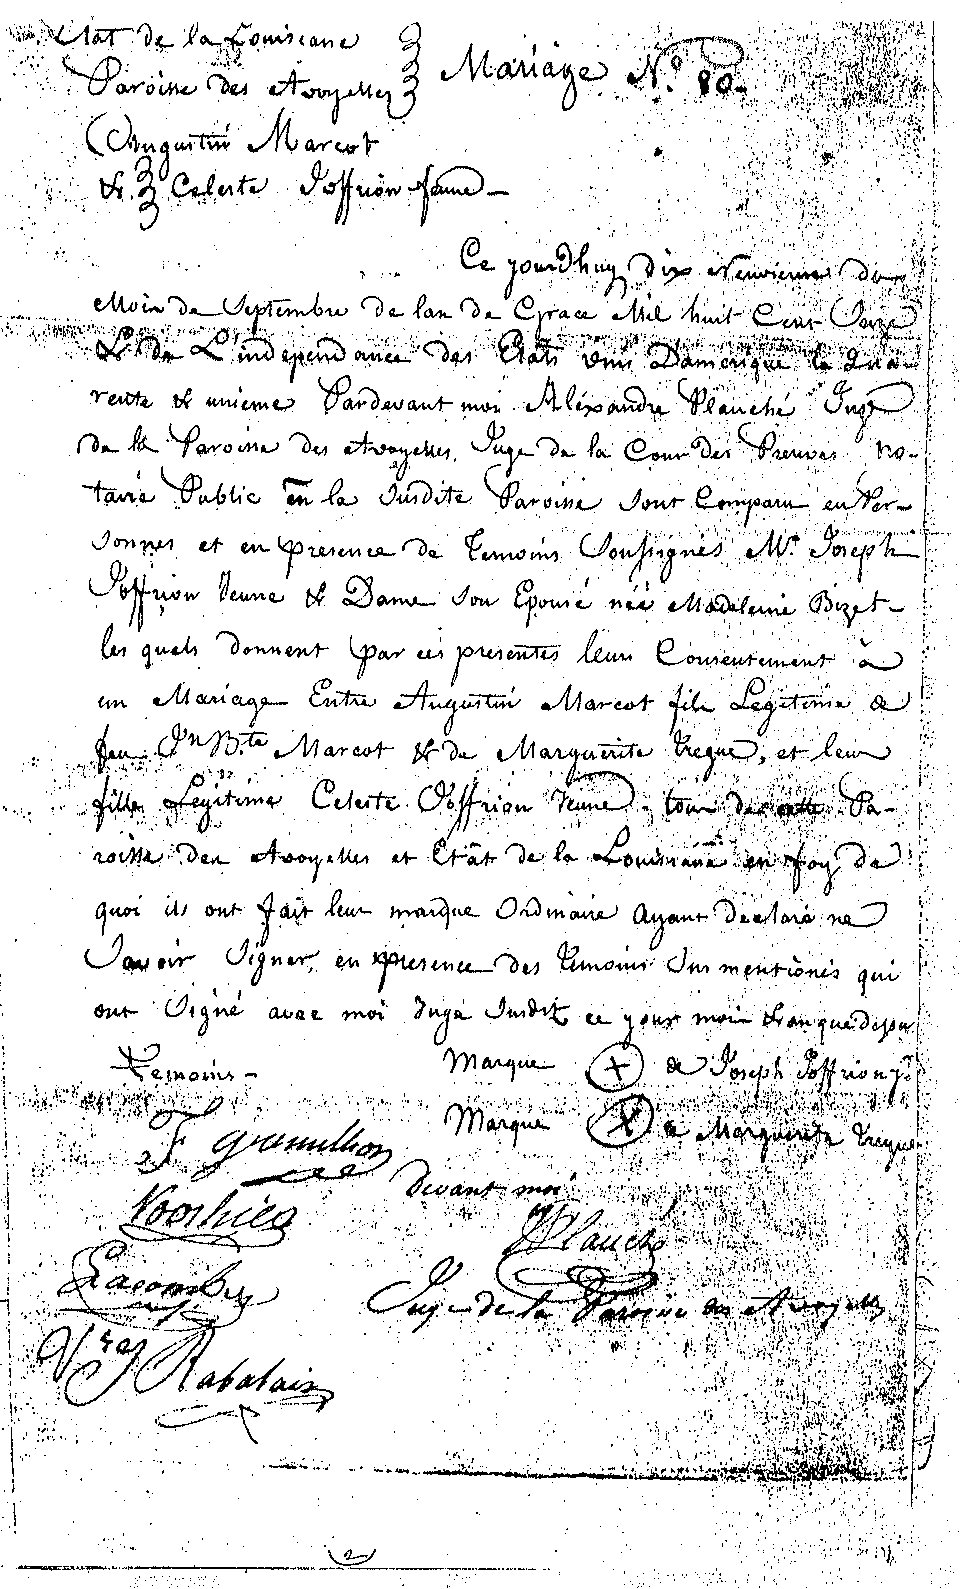 Etat de la Louisiane
Paroisse des Avoyelles
Mariage N.º 80.
Augustin Marcot
& Celeste Joffrion Jeune
Ce yourdhuy dix Neuvieme du
Moin de Septembre de lan de Grace Mil huit Cent Seize
& de L'independance des Etats unis Damerique la Qua-
rente & unieme Pardevant moi Alexandre Plauché Juge
de la Paroisse des Avoyelles, Juge de la Cour des Preuves No-
taire Public en la Susdite Paroisse sont Comparu en Per-
sonnes et en presence de temoins Soussignés Mr. Joseph
Joffrion Jeune & Dame son Epouse née Madeleine Bizet
les quels donnent par ces presentes leurs Consentement à
un Mariage Entre Augustin Marcot fils Legitime de
feu Jn Bte Marcot & de Marguerite tregue, et leur
fille Legitime Celeste Joffrion Jeune tous de cette Pa-
roisse des Avoyelles et Etât de la Louisiana en foy de
quoi ils ont fait leur marque Ordinaire ayant declaré ne
Savoir Signer, en presence des temoins Sus mentionés qui
ont Signé avec moi Juge Susdit ce your moin & an que dessus
Temoins
Marque + de Joseph Joffrion
Marque X de Marguerite tregue
F Gremillion
devant moi
Voorhies
Plauché
Lacombe
Juge de la Paroisse des Avoyelles
Rabalais
2